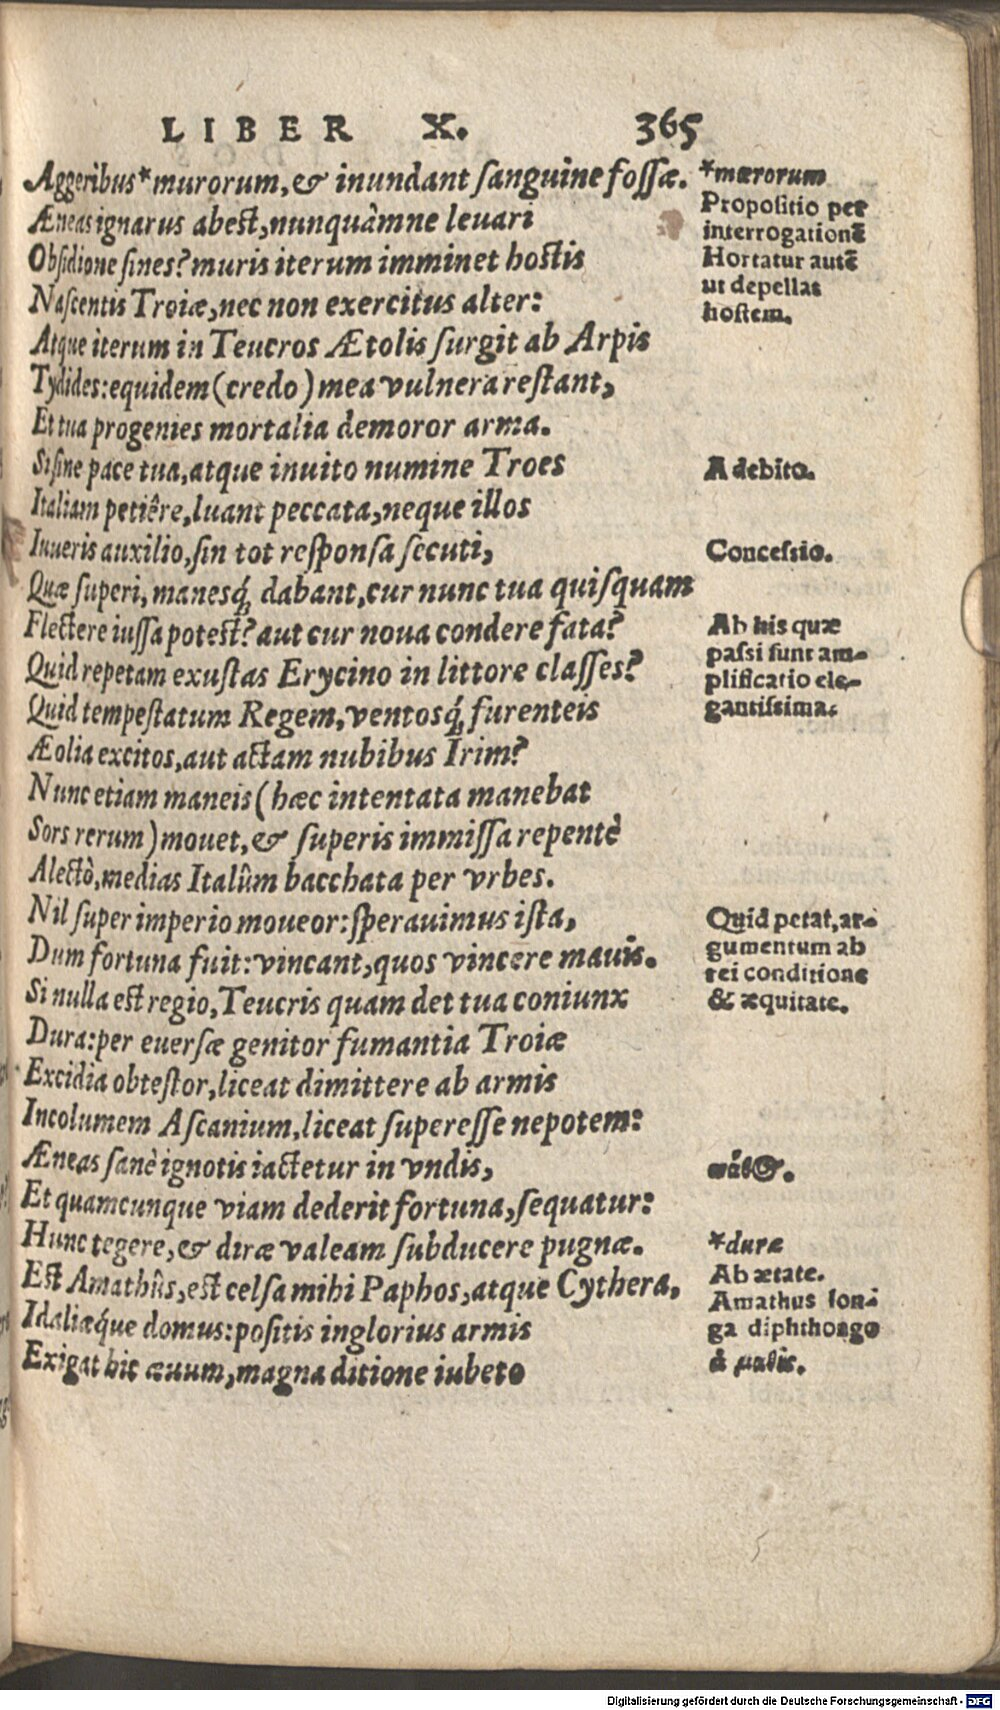 LIBER X. 365
Aggeribus* murorum, & inundant sanguine fossæ.
Æneas ignarus abest, nunquâmne leuari
Obsidione sines? muris iterum imminet hostis
Nascentis Troiæ, nec non exercitus alter:
Atque iterum in Teucros Ætolis surgit ab Arpis
Tydides: equidem (credo) mea vulnera restant,
Et tua progenies mortalia demoror arma.
Si sine pace tua, atque inuito numine Troes
Italiam petiêre, luant peccata, neque illos
Iuueris auxilio, sin tot responsa secuti,
Quæ superi, manesq́; dabant, cur nunc tua quisquam
Flectere iussa potest? aut cur noua condere fata?
Quid repetam exustas Erycino in littore classes?
Quid tempestatum Regem, ventosq́; furenteis
Æolia excitos, aut actam nubibus Irim?
Nunc etiam maneis (hæc intentata manebat
Sors rerum) mouet, & superis immissa repentè
Alectò, medias Italûm bacchata per vrbes.
Nil super imperio moueor: sperauimus ista,
Dum fortuna fuit: vincant, quos vincere mauis.
Si nulla est regio, Teucris quam det tua coniunx
Dura: per euersæ genitor fumantia Troiæ
Excidia obtestor, liceat dimittere ab armis
Incolumem Ascanium, liceat superesse nepotem:
Æneas sanè ignotis iactetur in vndis,
Et quamcunque viam dederit fortuna, sequatur:
Hunc tegere, & diræ valeam subducere pugnæ.
Est Amathûs, est celsa mihi Paphos, atque Cythera,
Idaliæq́ue domus: positis inglorius armis
Exigat hic æuum, magna ditione iubeto
*mœrorum
Propositio per
interrogationē
Hortatur autē
ut depellat
hostem.
A debito.
Concessio.
Ab his quæ
passi sunt am-
plificatio ele-
gantissima.
Quid petat, ar-
gumentum ab
rei conditione
& æquitate.
πάθ@.
*duræ
Ab ætate.
Amathus lon-
ga diphthongo
à
Digitalisierung gefördert durch die Deutsche Forschungsgemeinschaft - DFG